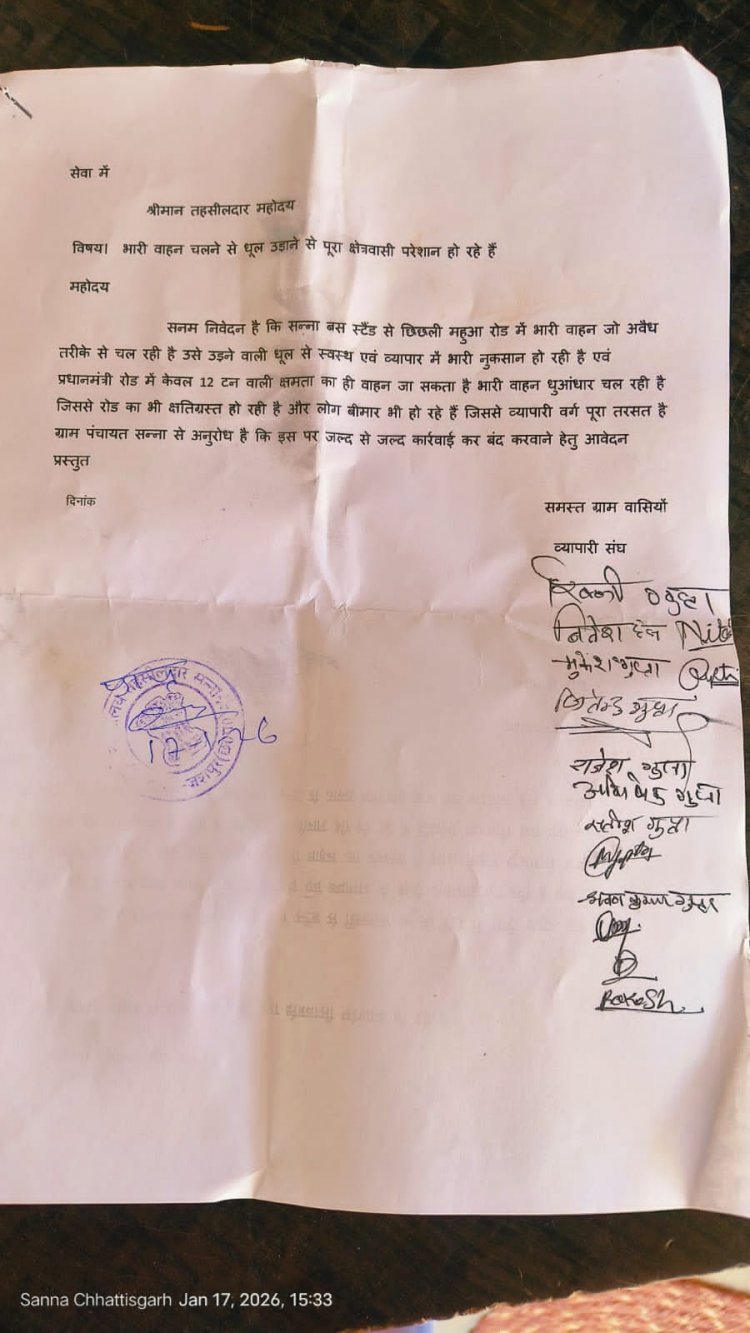 सेवा में
श्रीमान तहसीलदार महोदय
विषय। भारी वाहन चलने से धूल उड़ाने से पूरा क्षेत्रवासी परेशान हो रहे हैं
महोदय
सनम निवेदन है कि सन्ना बस स्टैंड से छिछली महुआ रोड में भारी वाहन जो अवैध
तरीके से चल रही है उसे उड़ने वाली धूल से स्वस्थ एवं व्यापार में भारी नुकसान हो रही है एवं
प्रधानमंत्री रोड में केवल 12 टन वाली क्षमता का ही वाहन जा सकता है भारी वाहन धुआंधार चल रही है
जिससे रोड का भी क्षतिग्रस्त हो रही है और लोग बीमार भी हो रहे हैं जिससे व्यापारी वर्ग पूरा तरसत है
ग्राम पंचायत सन्ना से अनुरोध है कि इस पर जल्द से जल्द कार्रवाई कर बंद करवाने हेतु आवेदन
प्रस्तुत
दिनांक
समस्त ग्राम वासियों
व्यापारी संघ
गुप्ता
नितेश
मुकेश गुप्ता
जितेन्द्र गुप्ता
राजेश गुप्ता
अभिषेक गुप्ता
सतीश गुप्ता
श्रवण कुमार गुप्ता
RakeSh
तहसीलदार सन्ना
जशपुर
Sanna Chhattisgarh Jan 17, 2026, 15:33